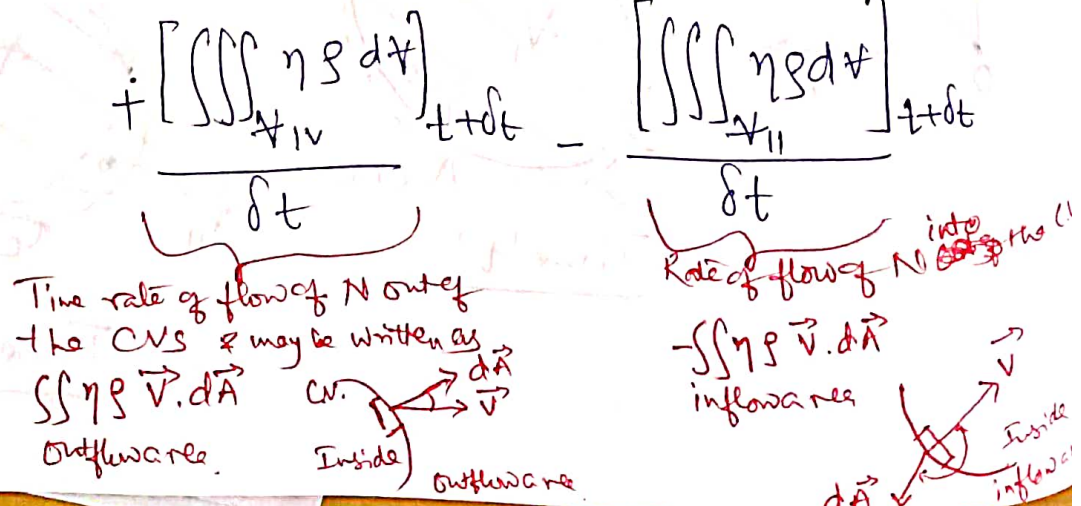 + [∫∫∫_{∀IV} ηρd∀]_{t+δt} / δt - [∫∫∫_{∀II} ηρd∀]_{t+δt} / δt
Time rate of flow of N out of
the CVS & may be written as
∫∫ηρ V⃗.dA⃗
outflow area
CV.
dA⃗
V⃗
Inside
outflow area
Rate of flow of N into the
-∫∫ηρ V⃗.dA⃗
inflow area
V⃗
Inside
dA⃗